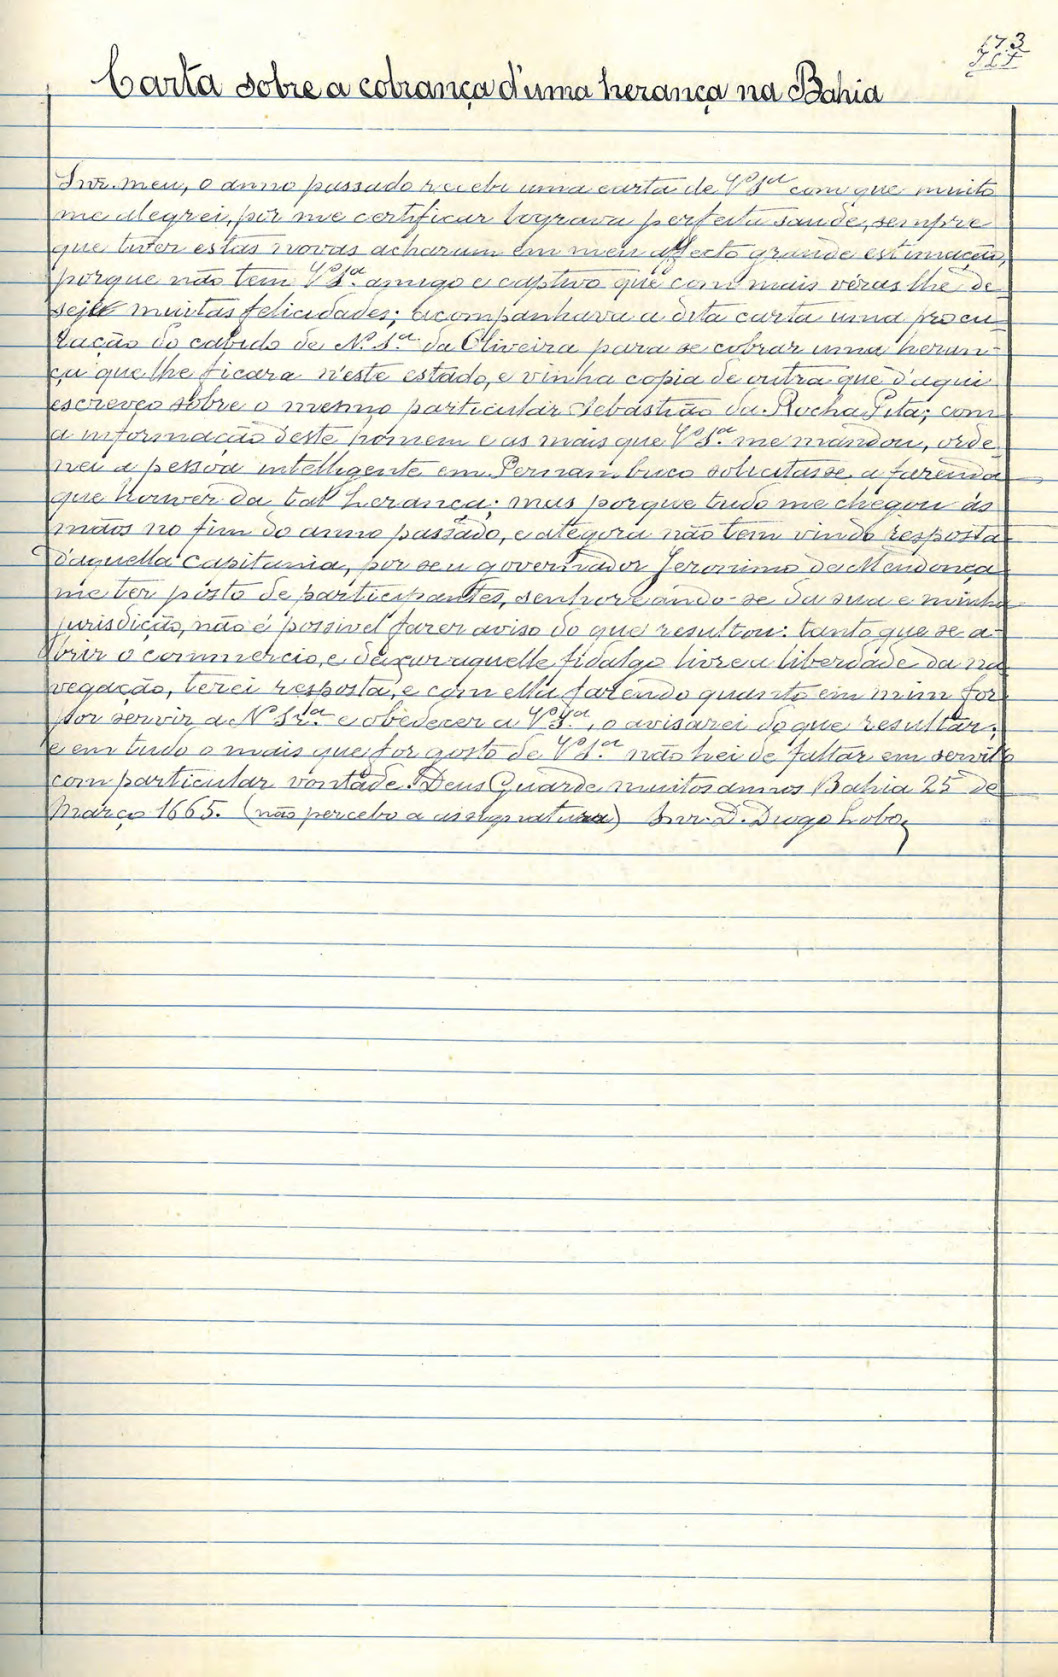 173
Carta sobre a cobrança d'uma herança na Bahia
Snr. meu, o anno passado recebi uma carta de Vª Sª com que muito
me alegrei, por me certificar lograva perfeita saude, sempre
que tiver estas novas acharam em meu affecto grande estimação,
porque não tem Vª Sª. amigo e captivo que com mais véras lhe de-
seje muitas felicidades; acompanhava a dita carta uma procu-
ração do cabido de N. Sr.ª da Oliveira para se cobrar uma heran-
ça que lhe ficara n'este estado, e vinha copia de outra que d'aqui
escreveo sobre o mesmo particular Sebastião da Rocha Pita; com
a informação deste homem e as mais que Vª Sª. me mandou, orde-
nei a pessoa intelligente em Pernambuco solicitasse a fazenda
que houver da tal herança; mas porque tudo me chegou ás
mãos no fim do anno passado, e atégora não tem vindo resposta
d'aquella Capitania, por seu governador Jeronimo de Mendonça
me ter posto de participantes, senhoreando-se da sua e minha
jurisdicção, não é possivel fazer aviso do que resultou: tanto que se a-
brir o commercio, e deixar aquelle fidalgo livre a liberdade da na-
vegação, terei resposta, e com ella fazendo quanto em mim for
por servir a N. Sr.ª e obedecer a Vª Sª, o avisarei do que resultar;
e em tudo o mais que for gosto de Vª Sª. não hei de faltar em servil-o
com particular vontade. Deus Guarde muitos annos Bahia 25 de
Março 1665. (não percebo a assignatura) Snr. D. Diogo Lobo,